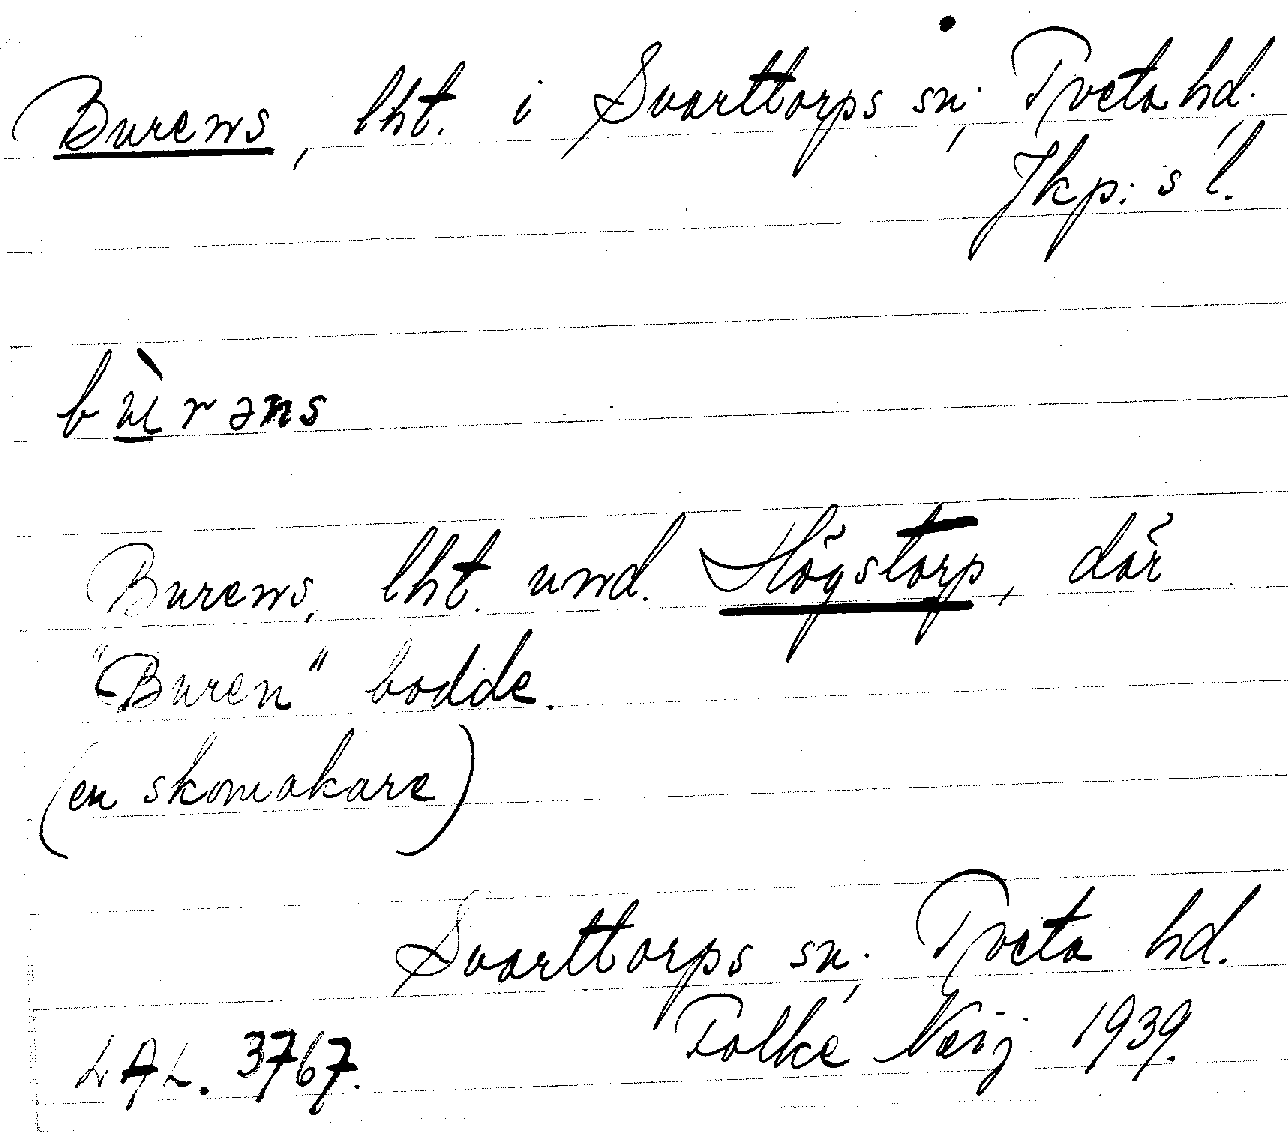 Burens, lht. i Svarttorps sn, Tveta hd.
Jkp:s l.
bù̲rəns
Burens, lht. und. Högstorp, där
"Buren" bodde.
(en skomakare)
Svarttorps sn, Tveta hd.
LAL. 3767. Folke Neij 1939.